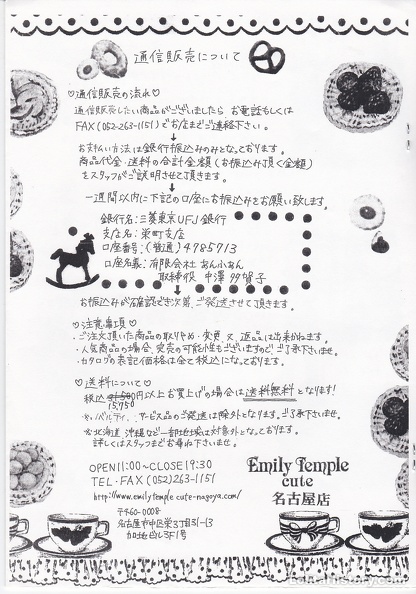 通信販売について
♡通信販売の流れ♡
通信販売したい商品がございましたら お電話もしくは
FAX(052-263-1151)でお店までご連絡下さい。
↓
お支払い方法は銀行振込みのみとなっております。
商品代金・送料の合計金額(お振込み頂く金額)
をスタッフがご説明させて頂きます。
↓
一週間以内に下記の口座にお振込みをお願い致します。
銀行名:三菱東京UFJ銀行
支店名:栄町支店
口座番号:(普通)4785713
口座名義:有限会社 あんふぁん
取締役 中澤 多賀子
↓
お振込みが確認でき次第、ご発送させて頂きます。
♡注意事項♡
・ご注文頂いた商品の取りやめ・変更、又、返品は出来かねます。
・人気商品の場合、完売の可能性もございますので、ご了承下さいませ。
・カタログの表記価格は全て税込になっております。
♡送料について♡
税込 15,750円以上お買上げの場合は送料無料となります!
※ノベルティ、サービス品のご発送は除外となります。ご了承下さいませ。
※北海道、沖縄など一部地域は対象外となっております。
詳しくはスタッフまでお尋ね下さいませ。
OPEN11:00~CLOSE19:30
TEL・FAX(052)263-1151
http://www.emilytemplecute-nagoya.com/
〒460-0008
名古屋市中区栄3丁目31-13
加地ビル3F1号
Emily Temple
cute
名古屋店